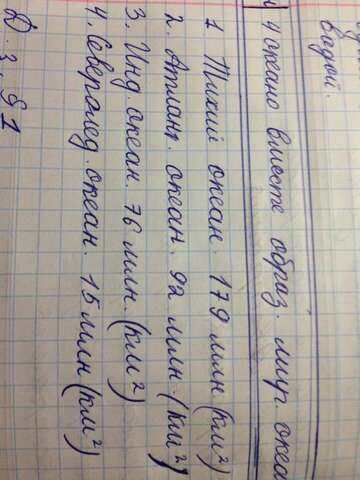 водой.
4 океана вместе образ. мир. океа
1 Тихий океан. 179 млн (км²)
2. Атлант. океан. 92 млн. (км²)
3. Инд. океан. 76 млн. (км²)
4. Северолед. океан. 15 млн (км²)
Д. з. §1